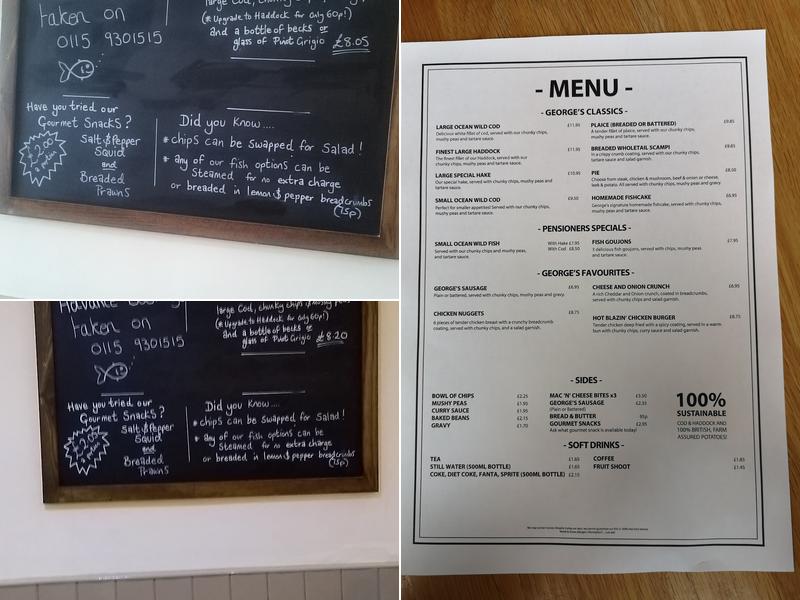 taken on
0115 9301515
large Cod, chunky chips
(* Upgrade to Haddock for Only 60p!)
and a bottle of becks or
glass of Pinot Grigio £8.05
Have you tried our
Gourmet Snacks?
£2.00
a portion
Salt & Pepper
Squid
and
Breaded
Prawns
Did you Know....
* chips can be swapped for Salad!
* any of our fish options can be
Steamed for no extra charge
or breaded in lemon & pepper breadcrumbs
(75p)
Advance
taken on
0115 9301515
large Cod, chunky chips
(* Upgrade to Haddock for Only 60p!)
and a bottle of becks or
glass of Pinot Grigio £8.20
Have you tried our
Gourmet Snacks?
a portion
Salt & Pepper
Squid
and
Breaded
Prawns
Did you Know....
* chips can be swapped for Salad!
* any of our fish options can be
Steamed for no extra charge
or breaded in lemon & pepper breadcrumbs
(75p)
- MENU -
- GEORGE'S CLASSICS -
LARGE OCEAN WILD COD £11.95
Delicious white fillet of cod, served with our chunky chips,
mushy peas and tartare sauce.
FINEST LARGE HADDOCK £11.95
The finest fillet of our Haddock, served with our
chunky chips, mushy peas and tartare sauce.
LARGE SPECIAL HAKE £10.95
Our special hake, served with chunky chips, mushy peas and
tartare sauce.
SMALL OCEAN WILD COD £9.50
Perfect for smaller appetites! Served with our chunky chips,
mushy peas and tartare sauce.
PLAICE (BREADED OR BATTERED) £9.85
A tender fillet of plaice, served with our chunky chips,
mushy peas and tartare sauce.
BREADED WHOLETAIL SCAMPI £9.85
In a crispy crumb coating, served with our chunky chips,
tartare sauce and salad garnish.
PIE £8.50
Choose from steak, chicken & mushroom, beef & onion or cheese,
leek & potato. All served with chunky chips, mushy peas and gravy
HOMEMADE FISHCAKE £6.95
George's signature homemade fishcake, served with chunky chips,
mushy peas and tartare sauce.
- PENSIONERS SPECIALS -
SMALL OCEAN WILD FISH With Hake £7.95
Served with our chunky chips and mushy peas, With Cod £8.50
and tartare sauce.
FISH GOUJONS £7.95
3 delicious fish goujons, served with chips, mushy peas
and tartare sauce.
- GEORGE'S FAVOURITES -
GEORGE'S SAUSAGE £6.95
Plain or battered, served with chunky chips, mushy peas and gravy.
CHICKEN NUGGETS £8.75
6 pieces of tender chicken breast with a crunchy breadcrumb
coating, served with chunky chips, and a salad garnish.
CHEESE AND ONION CRUNCH £6.95
A rich Cheddar and Onion crunch, coated in breadcrumbs,
served with chunky chips and salad garnish.
HOT BLAZIN' CHICKEN BURGER £8.75
Tender chicken deep fried with a spicy coating, served in a warm
bun with chunky chips, curry sauce and salad garnish.
- SIDES -
BOWL OF CHIPS £2.25
MUSHY PEAS £1.95
CURRY SAUCE £1.95
BAKED BEANS £2.15
GRAVY £1.70
MAC 'N' CHEESE BITES x3 £3.50
GEORGE'S SAUSAGE £2.35
(Plain or Battered)
BREAD & BUTTER 95p
GOURMET SNACKS £2.95
Ask what gourmet snack is available today!
100%
SUSTAINABLE
COD & HADDOCK AND
100% BRITISH, FARM
ASSURED POTATOES!
- SOFT DRINKS -
TEA £1.65
STILL WATER (500ML BOTTLE) £1.65
COKE, DIET COKE, FANTA, SPRITE (500ML BOTTLE) £2.15
COFFEE £1.85
FRUIT SHOOT £1.45